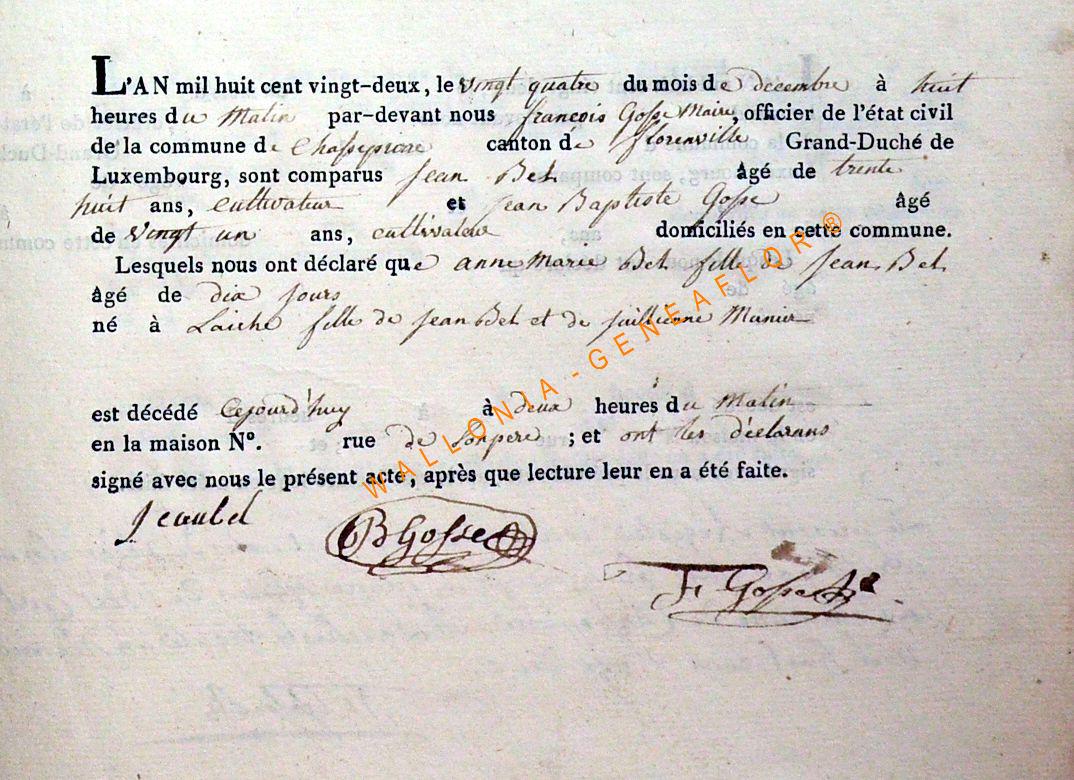 L'AN mil huit cent vingt-deux, le vingt quatre du mois de decembre à huit
heures du Matin par-devant nous francois Gosse Maire, officier de l'état civil
de la commune de Chassepierre canton de florenville Grand-Duché de
Luxembourg, sont comparus Jean Bel âgé de trente
huit ans, Cultivateur et Jean Baptiste Gosse âgé
de vingt un ans, cultivateur domiciliés en cette commune.
Lesquels nous ont déclaré que anne Marie Bel fille de Jean Bel
âgé de dix jours
né à Laiche fille de Jean Bel et de Juillienne
est décédé Cejourd'huy à deux heures du Matin
en la maison N°. rue de son pere ; et ont les déclarans
signé avec nous le présent acte, après que lecture leur en a été faite.
Jeanbel
B Gosse
F Gosse
WALLONIA - GENEAFLOR ®